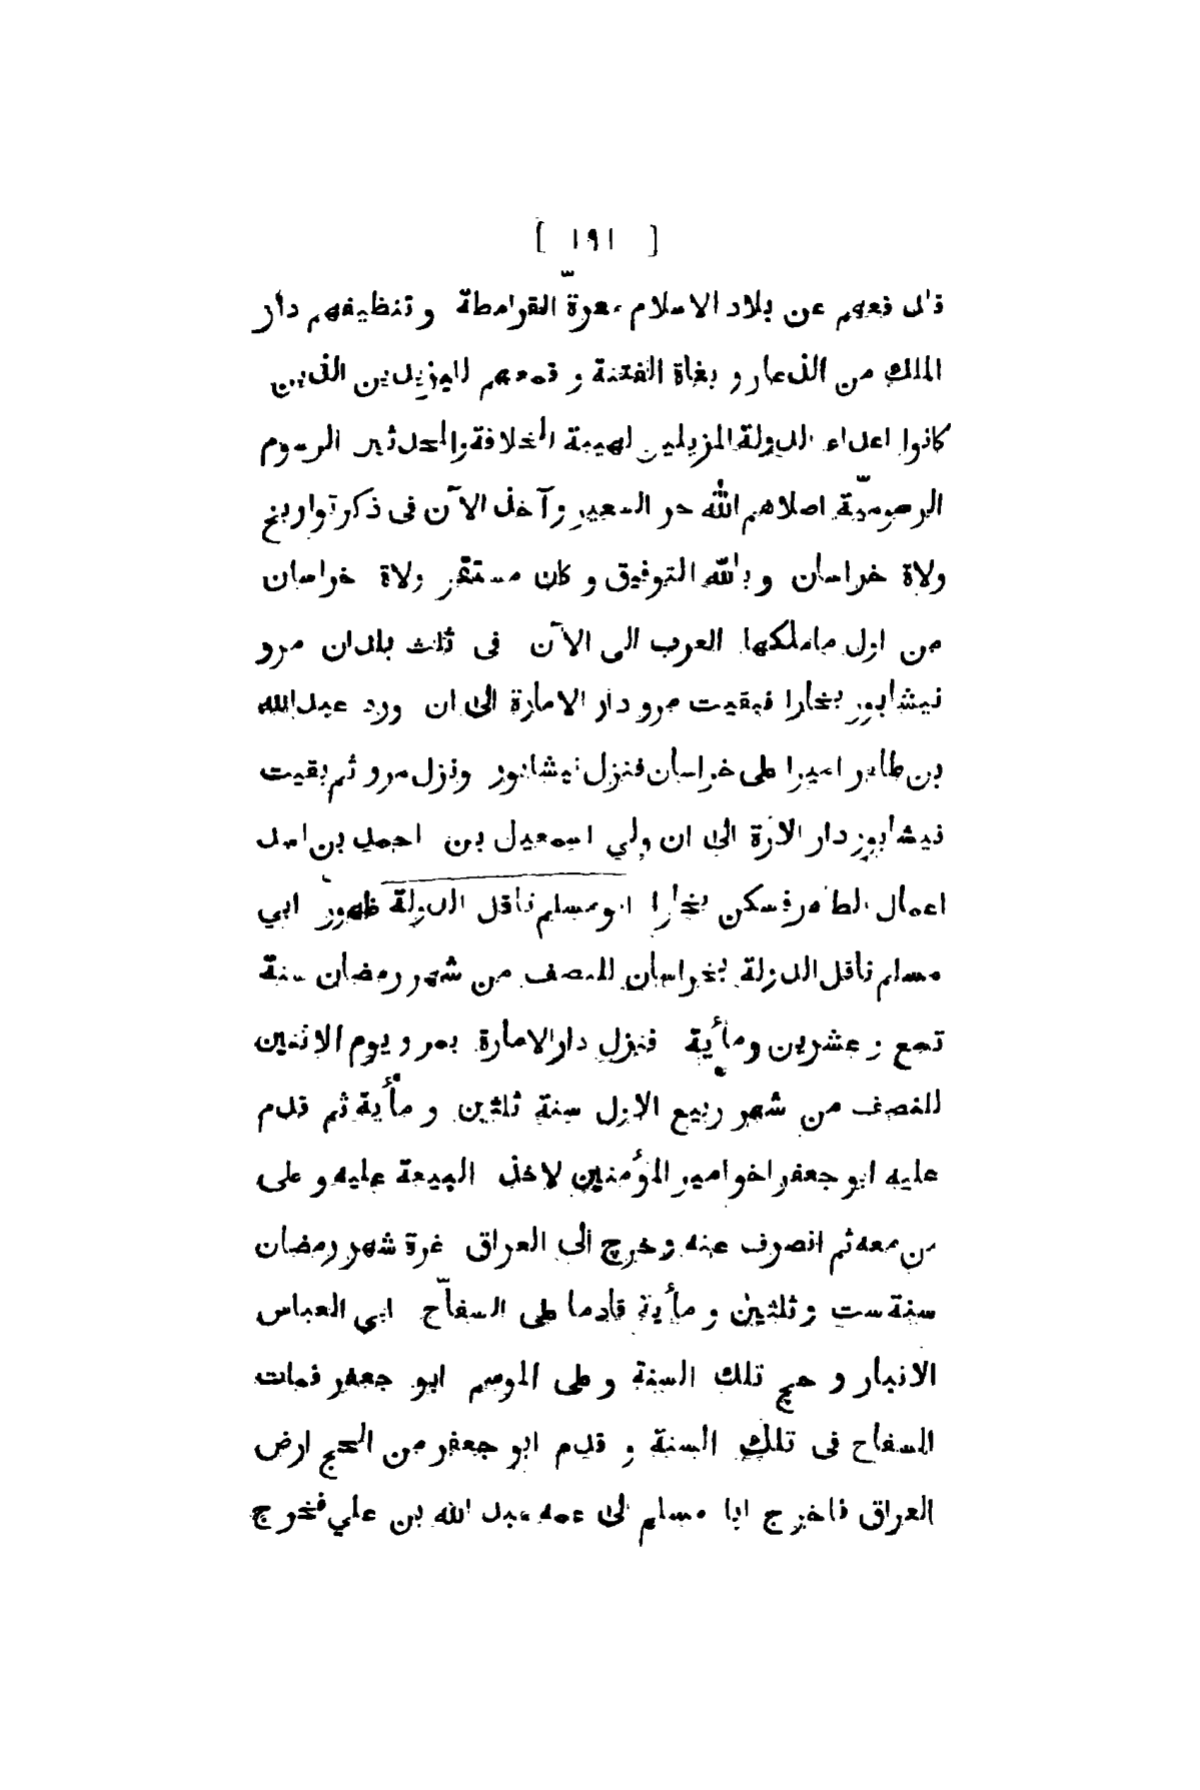 [ ١٩١ ]
فعهم عن بلاد الاسلام معرّة القرامطة و تنظيفهم دار
الملك من الذعار و بغاة الفتنة و قمعهم لليزيديين الذين
كانوا اعداء الدولة المزيلين لهيبة الخلافة والمحدثين الرسوم
اصلاهم الله حر السعير و آخذ الآن فى ذكر تواريخ
ولاة خراسان و بالله التوفيق و كان مستقر ولاة خراسان
من اول ماملكها العرب الى الآن فى ثلث بلدان مرو
نيشابور بخارا فبقيت مرو دار الامارة الى ان ورد عبدالله
بن طاهر اميرا على خراسان فنزل نيشابور ونزل مرو ثم بقيت
نيشابور دار الازة الى ان ولي اسمعيل بن احمد بن اسد
اعمال الطاهر فسكن بخارا ابومسلم ناقل الدولة ظهور ابي
مسلم ناقل الدولة بخراسان للنصف من شهر رمضان سنة
تسع و عشرين ومأية فنزل دارالامارة بمرو يوم الاثنين
للنصف من شهر ربيع الاول سنة ثلثين و مأية ثم قدم
عليه ابو جعفر اخو امير المؤمنين لاخذ البيعة عليه و على
من معه ثم انصرف عنه و خرج الى العراق غرة شهر رمضان
سنة ست و ثلثين و مأية قادما على السفّاح ابي العباس
الانبار و حج تلك السنة و على الموسم ابو جعفر فمات
السفاح فى تلك السنة و قدم ابو جعفر من الحج ارض
العراق فاخرج ابا مسلم الى عمه عبد الله بن علي فخرج